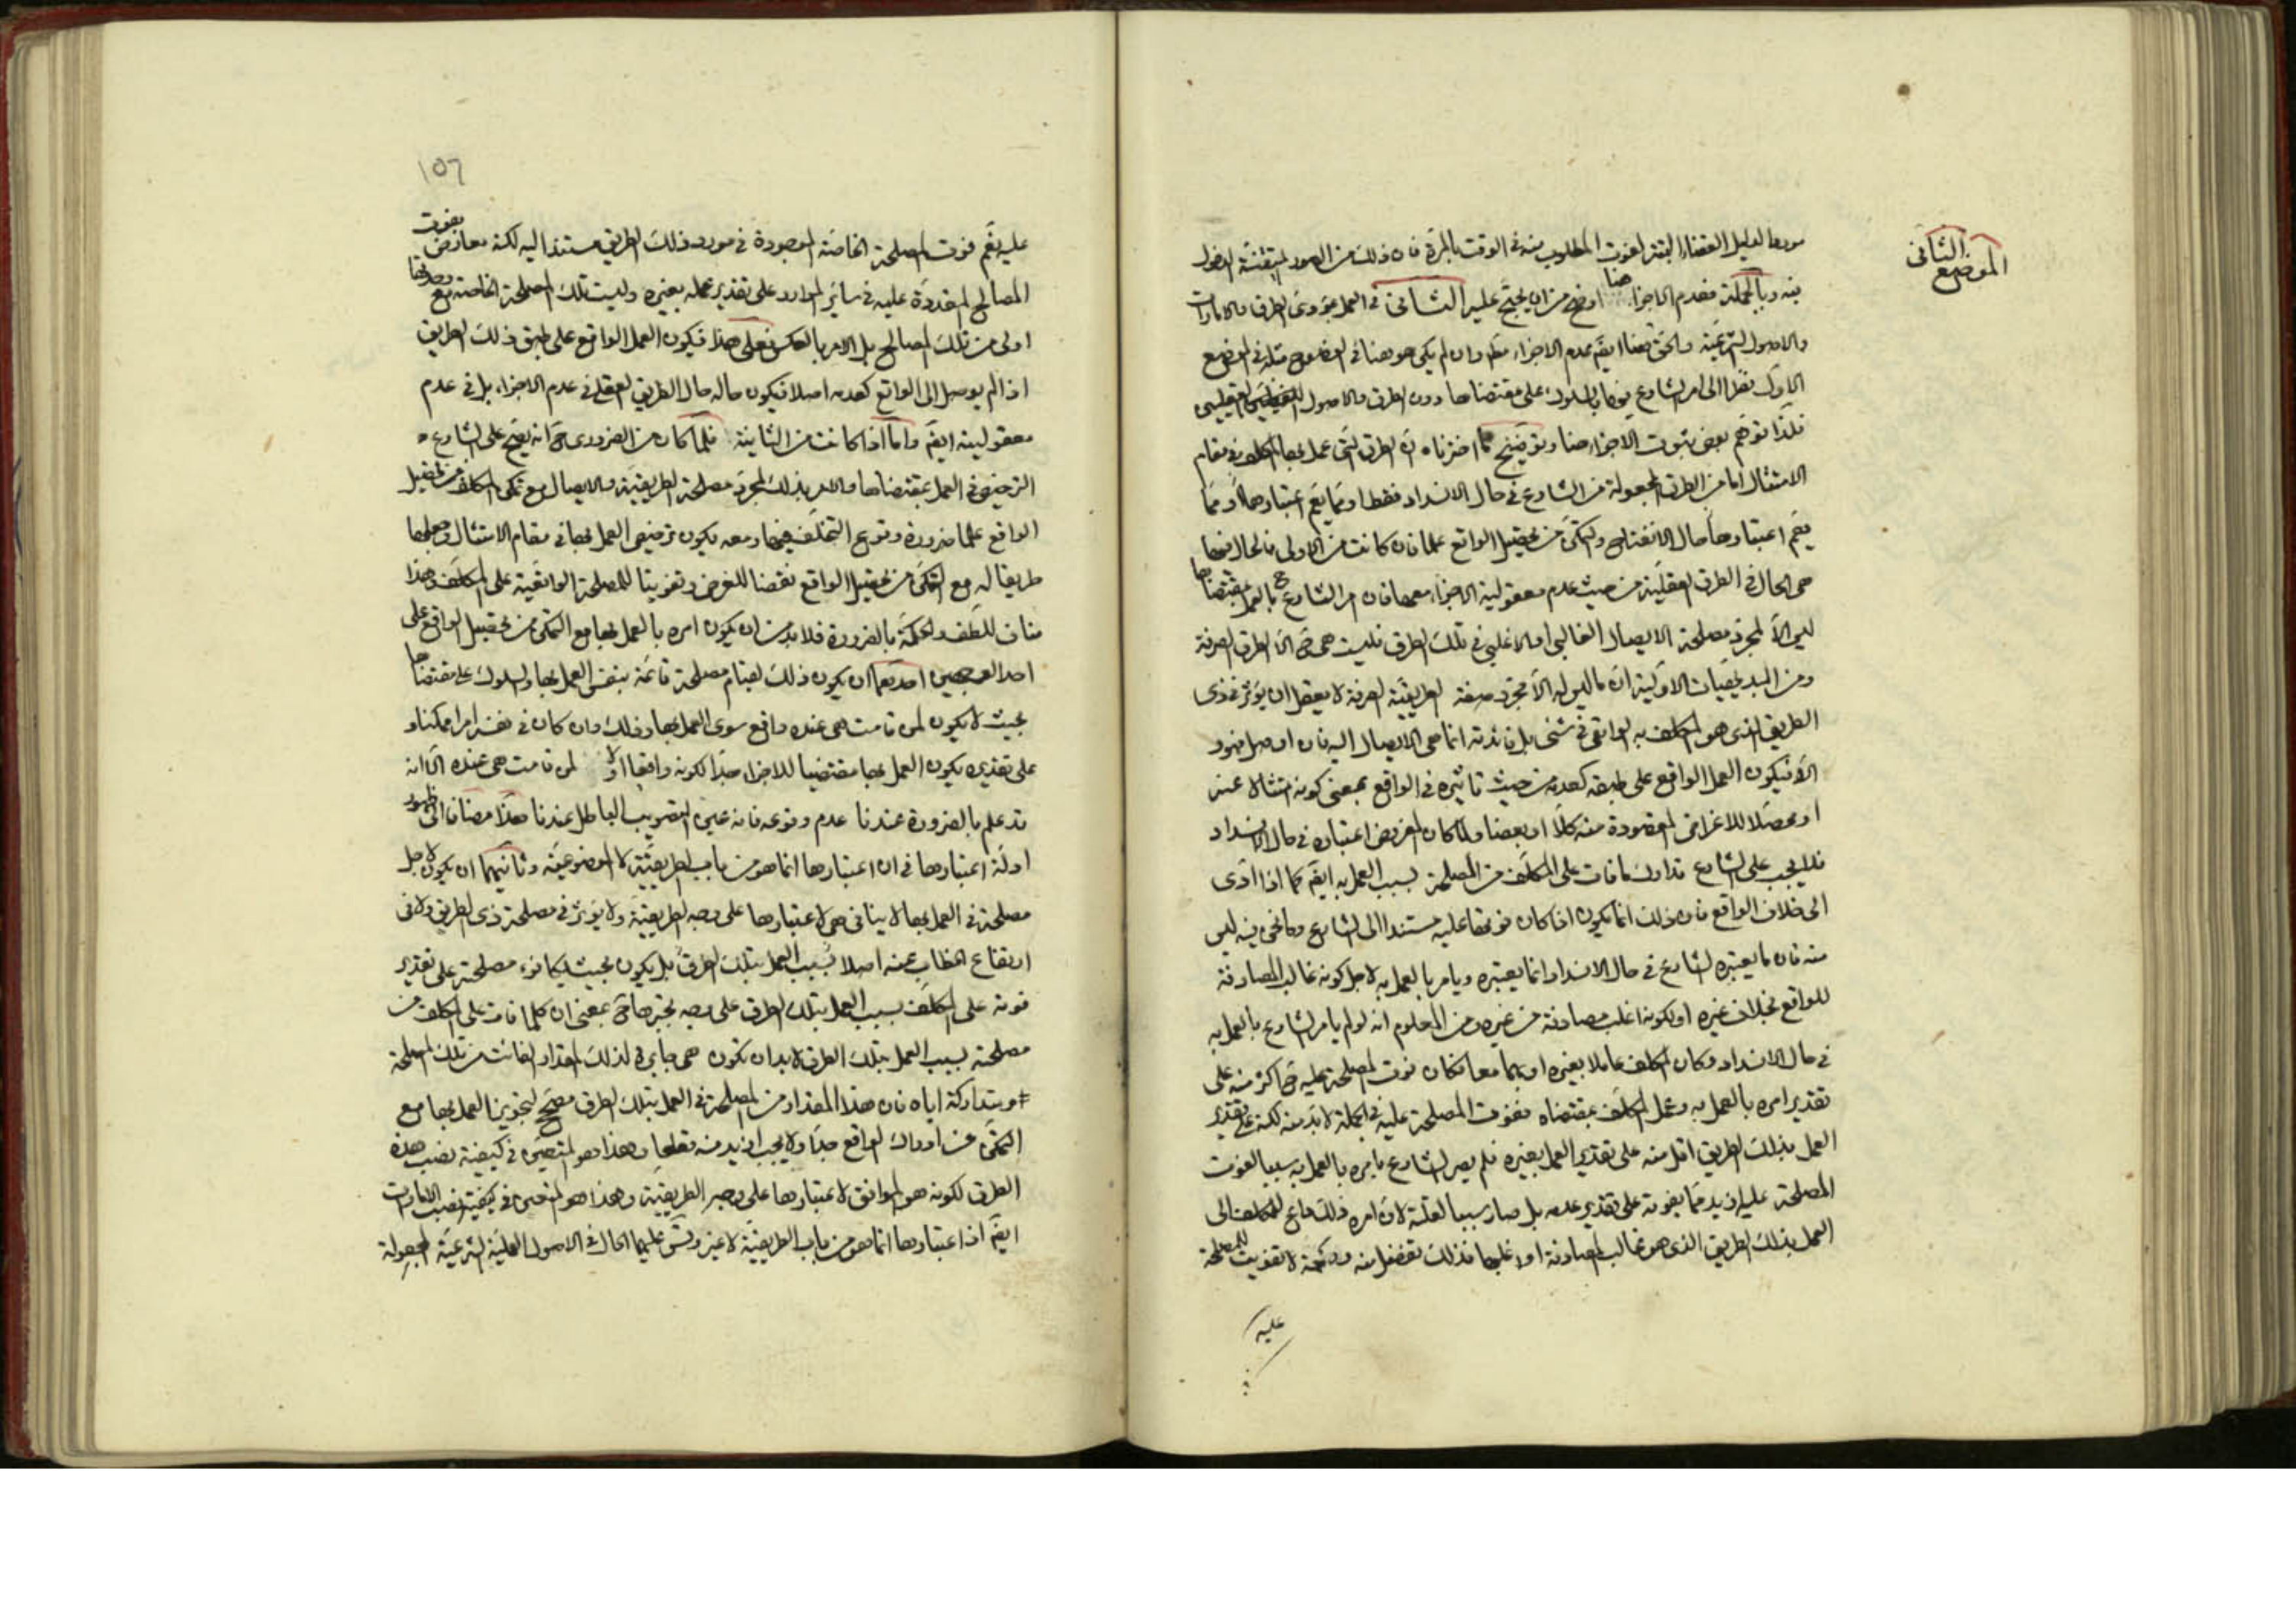 الموضع الثاني
مورد الدليل القضاء البتة لفوت المطلوب منه في الوقت بالمرة فان ذلك من الصور المتيقنة الدخول
فيه وبالجملة فعدم الاجزاء هنا اوضح من ان يحتج عليه الثاني في العمل بمؤدى الطرق والامارات
والاصول الشرعية والحق هنا ايضم عدم الاجزاء مطم وان لم يكن هو هنا في الوضوح مثله في الموضع
الاول نظرا الى امر الشارع هنا بالسلوك على مقتضاها دون الطرق والاصول العقليين
فلذا توهم بعض ثبوت الاجزاء هنا وتوضيح ما اخترناه ان الطرق التي عمل بها المكلف في مقام
الامتثال اما من الطرق المجعولة من الشارع في حال الانسداد فقط او مما يعم اعتبارها او مما
يعم اعتبارها حال الانفتاح والتمكن من تحصيل الواقع علما فان كانت من الاولى فالحال فيها
هي الحال في الطرق العقلية من حيث عدم معقولية الاجزاء معها فان امر الشارع ح بالعمل بمقتضاها
ليس الا لمجرد مصلحة الايصال الغالبي او الاغلبي في تلك الطرق فليست هي ح الا الطرق الصرفة
ومن البديهيات الاولية ان ما ليس له الا مجرد صفة الطريقية الصرفة لا يعقل ان يؤثر في ذي
الطريق الذي هو المكلف به الواقعي في شئ بل فائدته انما هي الايصال اليه فان اوصل فهو
الا فيكون العمل الواقع على طبقه كعدمه من حيث تاثيره في الواقع بمعنى كونه امتثالا عنه
او محصلا للاغراض المقصودة منه كلا او بعضا ولما كان المفروض اعتباره في حال الانسداد
فلا يجب على الشارع تدارك ما فات على المكلف من المصلحة بسبب العمل به ايضم كما اذا ادى
الى خلاف الواقع فان ذلك انما يكون اذا كان فوتها عليه مستندا الى الشارع وما نحن فيه ليس
منه فان ما يعتبره الشارع في حال الانسداد انما يعتبره ويامر بالعمل به لاجل كونه غالب المصادفة
للواقع بخلاف غيره او لكونه اغلب مصادفة من غيره ومن المعلوم انه لو لم يامر الشارع بالعمل به
في حال الانسداد وكان المكلف عاملا بغيره او بهما معا لكان فوت المصلحة عليه ح اكثر منه على
تقدير امره بالعمل به وعمل المكلف بمقتضاه ففوت المصلحة عليه في الجملة لا بد منه لكنه على تقدير
العمل بذلك الطريق اقل منه على تقدير العمل بغيره فلم يصر الشارع بامره بالعمل به سببا لفوت
المصلحة عليه ازيد مما يفوته على تقدير عدمه بل صار سببا لقلته لان امره ذلك داع للمكلف الى
العمل بذلك الطريق الذي هو غالب المصادفة او اغلبها فذلك تفضل منه ورحمة لا تفويت للمصلحة
عليه
١٥٦
عليه نعم فوت المصلحة الخاصة الموجودة في مورد ذلك الطريق مستند اليه لكنه معارض بفوت
المصالح المتعددة عليه في سائر الموارد على تقدير عمله بغيره وليست تلك المصلحة الخاصة مع وحدتها
اولى من تلك المصالح بل الامر بالعكس فعلى هذا فيكون العمل الواقع على طبق ذلك الطريق
اذا لم يوصل الى الواقع كعدمه اصلا فيكون حاله حال الطريق العقلي في عدم الاجزاء بل في عدم
معقوليته ايضم واما اذا كانت من الثانية فلما كان من الضروري ح انه يقبح على الشارع
الترخيص في العمل بمقتضاها والامر بذلك لمجرد مصلحة الطريقية والايصال مع تمكن المكلف من تحصيل
الواقع علما ضرورة وقوع التخلف فيها ومعه يكون ترخيص العمل بها في مقام الامتثال وجعلها
طريقا له مع التمكن من تحصيل الواقع نقضا للغرض وتفويتا للمصلحة الواقعية على المكلف وهذا
مناف للطف والحكمة بالضرورة فلا بد من ان يكون امره بالعمل بها مع التمكن من تحصيل الواقع على
احد الوجهين احدهما ان يكون ذلك لقيام مصلحة قائمة بنفس العمل بها والسلوك على مقتضاها
بحيث لا يكون لمن قامت هي عنده واقع سوى العمل بها وذلك وان كان في نفسه امرا ممكنا و
على تقديره يكون العمل بها مقتضيا للاجزاء جدا لكونه واقعا اولا لمن قامت هي عنده الا انه
قد علم بالضرورة عندنا عدم وقوعه فانه عين التصويب الباطل عندنا هذا مضافا الى ظهور
ادلة اعتبارها في ان اعتبارها انما هو من باب الطريقية لا الموضوعية وثانيهما ان يكون لاجل
مصلحة في العمل بها لا ينافي هي لاعتبارها على وجه الطريقية ولا يؤثر في مصلحة ذي الطريق ولا في
ارتفاع الخطاب عنه اصلا بسبب العمل بتلك الطرق بل يكون بحيث يكافؤ مصلحته على تقدير
فوته على المكلف بسبب العمل بتلك الطرق على وجه يجبرها ح بمعنى ان كلما فات على المكلف من
مصلحته بسبب العمل بتلك الطرق لا بد ان تكون هي جابرة لذلك المقدار الفائت من تلك المصلحة
ومتداركة اياه فان هذا المقدار من المصلحة في العمل بتلك الطرق مصحح لتجويز العمل بها مع
التمكن من ادراك الواقع جدا ولا يجب ازيد منه قطعا وهذا هو المتعين في كيفية نصب هذه
الطرق لكونه هو الموافق لاعتبارها على وجه الطريقية وهذا هو المتعين في كيفية نصب الامارات
ايضم اذ اعتبارها انما هو من باب الطريقية لا غير وقس عليهما الحال في الاصول العملية الشرعية المجعولة